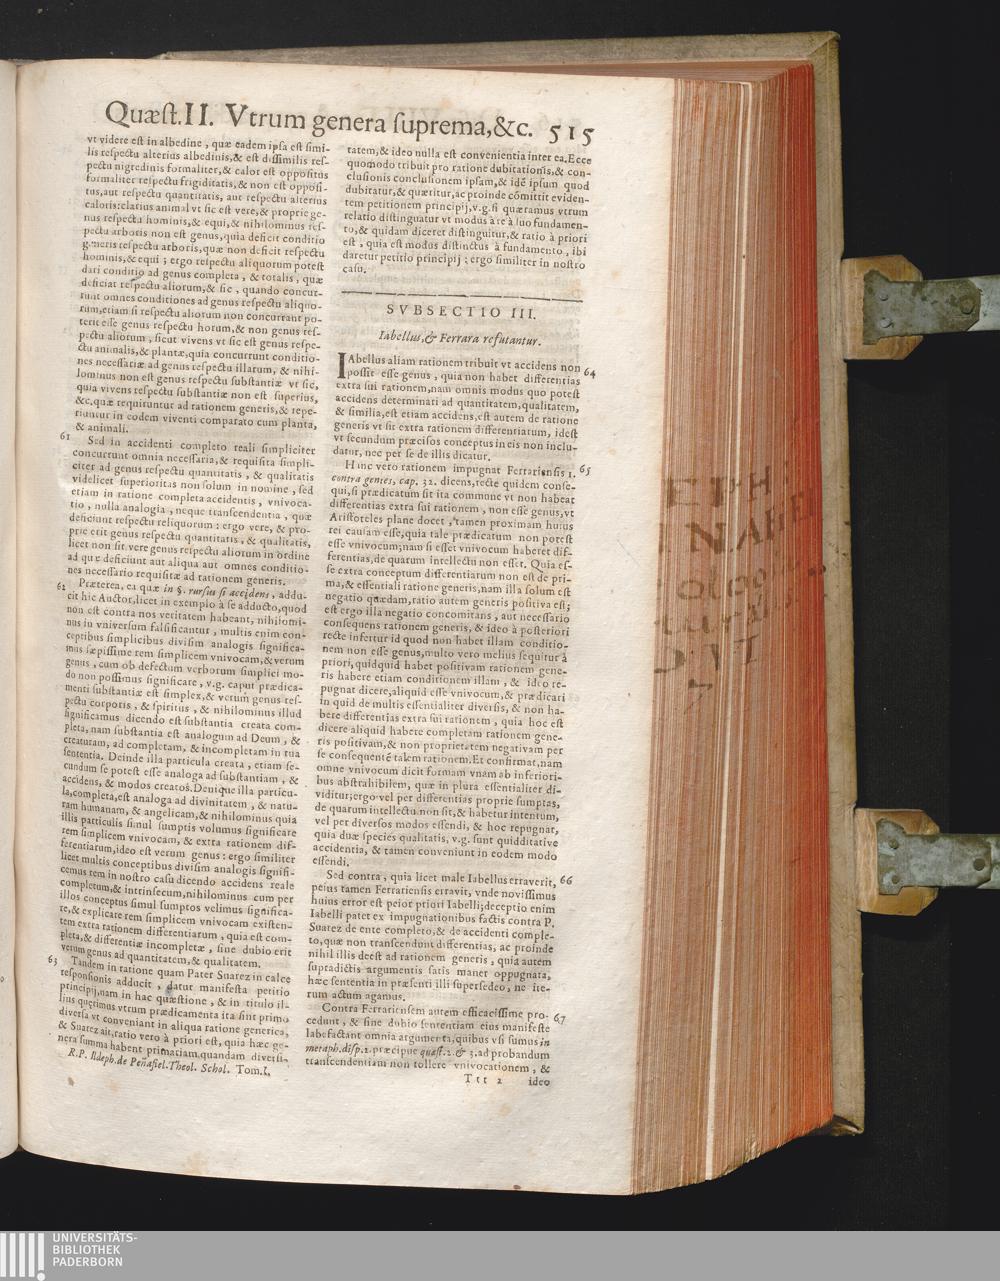 Quæst. II. Vtrum genera suprema, &c. 515
vt videre est in albedine, quæ eadem ipsa est simi-
lis respectu alterius albedinis, & est dissimilis res-
pectu nigredinis formaliter, & calor est oppositus
formaliter respectu frigiditatis, & non est opposi-
tus, aut respectu quantitatis, aut respectu alterius
caloris: clarius animal vt sic est vere, & proprie ge-
nus respectu hominis, & equi, & nihilominus res-
pectu arboris non est genus, quia deficit conditio
generis respectu arboris, quæ non deficit respectu
hominis, & equi; ergo respectu aliquorum potest
dari conditio ad genus completa, & totalis, quæ
deficiat respectu aliorum, & sic, quando concur-
runt omnes conditiones ad genus respectu aliquo-
rum, etiam si respectu aliorum non concurrant po-
terit esse genus respectu horum, & non genus res-
pectu aliorum, sicut vivens vt sic est genus respe-
ctu animalis, & plantæ, quia concurrunt conditio-
nes necessariæ ad genus respectu illarum, & nihi-
lominus non est genus respectu substantiæ vt sic,
quia vivens respectu substantiæ non est superius,
&c. quæ requiruntur ad rationem generis, & repe-
riuntur in eodem viventi comparato cum planta,
& animali.
61 Sed in accidenti completo reali simpliciter
concurrunt omnia necessaria, & requisita simpli-
citer ad genus respectu quantitatis, & qualitatis
videlicet superioritas non solum in nomine, sed
etiam in ratione completa accidentis, vnivoca-
tio, nulla analogia, neque transcendentia, quæ
deficiunt respectu reliquorum: ergo vere, & pro-
prie erit genus respectu quantitatis, & qualitatis,
licet non sit vere genus respectu aliorum in ordine
ad quæ deficiunt aut aliqua aut omnes conditio-
nes necessario requisitæ ad rationem generis.
62 Præterea, ea quæ in §. rursus si accidens, addu-
cit hic Auctor, licet in exemplo à se adducto, quod
non est contra nos veritatem habeant, nihilomi-
nus in vniversum falsificantur, multis enim con-
ceptibus simplicibus divisim analogis significa-
mus sæpissime rem simplicem vnivocam, & verum
genus, cum ob defectum verborum simplici mo-
do non possimus significare, v.g. caput prædica-
menti substantiæ est simplex, & verum genus res-
pectu corporis, & spiritus, & nihilominus illud
significamus dicendo est substantia creata com-
pleta, nam substantia est analogum ad Deum, &
creaturam, ad completam, & incompletam in tua
sententia. Deinde illa particula creata, etiam se-
cundum se potest esse analoga ad substantiam, &
accidens, & modos creatos. Denique illa particu-
la, completa, est analoga ad divinitatem, & natu-
ram humanam, & angelicam, & nihilominus quia
illis particulis simul sumptis volumus significare
rem simplicem vnivocam, & extra rationem dif-
ferentiarum, ideo est verum genus: ergo similiter
licet multis conceptibus divisim analogis signifi-
cemus rem in nostro casu dicendo accidens reale
completum, & intrinsecum, nihilominus cum per
illos conceptus simul sumptos velimus significa-
re, & explicare rem simplicem vnivocam existen-
tem extra rationem differentiarum, quia est com-
pleta, & differentiæ incompletæ, sine dubio erit
verum genus ad quantitatem, & qualitatem.
63 Tandem in ratione quam Pater Suarez in calce
responsionis adducit, datur manifesta petitio
principij, nam in hac quæstione, & in titulo il-
lius quærimus vtrum prædicamenta ita sint primo
diversa vt conveniant in aliqua ratione generica,
& Suarez ait, ratio vero à priori est, quia hæc ge-
nera summa habent primatiam, quandam diversi-
R.P. Ildeph. de Peñafiel. Theol. Schol. Tom. I.
tatem, & ideo nulla est convenientia inter ea. Ecce
quomodo tribuit pro ratione dubitationis, & con-
clusionis conclusionem ipsam, & idē ipsum quod
dubitatur, & quæritur, ac proinde cōmittit eviden-
tem petitionem principij, v.g. si quæramus vtrum
relatio distinguatur vt modus à re à suo fundamen-
to, & quidam diceret distinguitur, & ratio à priori
est, quia est modus distinctus à fundamento, ibi
daretur petitio principij; ergo similiter in nostro
casu.
SVBSECTIO III.
Iabellus, & Ferrara refutantur.
IAbellus aliam rationem tribuit vt accidens non 64
possit esse genus, quia non habet differentias
extra sui rationem, nam omnis modus quo potest
accidens determinati ad quantitatem, qualitatem,
& similia, est etiam accidens, est autem de ratione
generis vt sit extra rationem differentiarum, idest
vt secundum præcisos conceptus in eis non inclu-
datur, nec per se de illis dicatur.
Hanc vero rationem impugnat Ferrariensis 1. 65
contra gentes, cap. 32. dicens, recte quidem conse-
qui, si prædicatum sit ita commune vt non habeat
differentias extra sui rationem, non esse genus, vt
Aristoteles plane docet, tamen proximam huius
rei causam esse, quia tale prædicatum non potest
esse vnivocum; nam si esset vnivocum haberet dif-
ferentias, de quarum intellectu non esset. Quia es-
se extra conceptum differentiarum non est de pri-
ma, & essentiali ratione generis, nam illa solum est
negatio quædam, ratio autem generis positiva est;
est ergo illa negatio concomitans, aut necessario
consequens rationem generis, & ideo à posteriori
recte infertur id quod non habet illam conditio-
nem non esse genus, multo vero melius sequitur à
priori, quidquid habet positivam rationem gene-
ris habere etiam conditionem illam, & ideo re-
pugnat dicere, aliquid esse vnivocum, & prædicari
in quid de multis essentialiter diversis, & non ha-
bere differentias extra sui rationem, quia hoc est
dicere aliquid habere completam rationem gene-
ris positivam, & non proprietatem negativam per
se consequentē talem rationem. Et confirmat, nam
omne vnivocum dicit formam vnam ab inferiori-
bus abstrahibilem, quæ in plura essentialiter di-
viditur; ergo vel per differentias proprie sumptas,
de quarum intellectu non sit, & habetur intentum,
vel per diversos modos essendi, & hoc repugnat,
quia duæ species qualitatis, v.g. sunt quidditative
accidentia, & tamen conveniunt in eodem modo
essendi.
Sed contra, quia licet male Iabellus erraverit, 66
peius tamen Ferrariensis erravit, vnde novissimus
huius error est peior priori Iabelli; deceptio enim
Iabelli patet ex impugnationibus factis contra P.
Suarez de ente completo, & de accidenti comple-
to, quæ non transcendunt differentias, ac proinde
nihil illis deest ad rationem generis, quia autem
supradictis argumentis satis maner oppugnata,
hæc sententia in præsenti illi supersedeo, ne ite-
rum actum agamus.
Contra Ferrariensem autem efficacissime pro- 67
cedunt, & sine dubio sententiam eius manifeste
labefactant omnia argumenta, quibus vsi sumus in
metaph. disp. 2. præcipue quæst. 2. & 3. ad probandum
transcendentiam non tollere vnivocationem, &
Ttt 2 ideo
UNIVERSITÄTS-
BIBLIOTHEK
PADERBORN